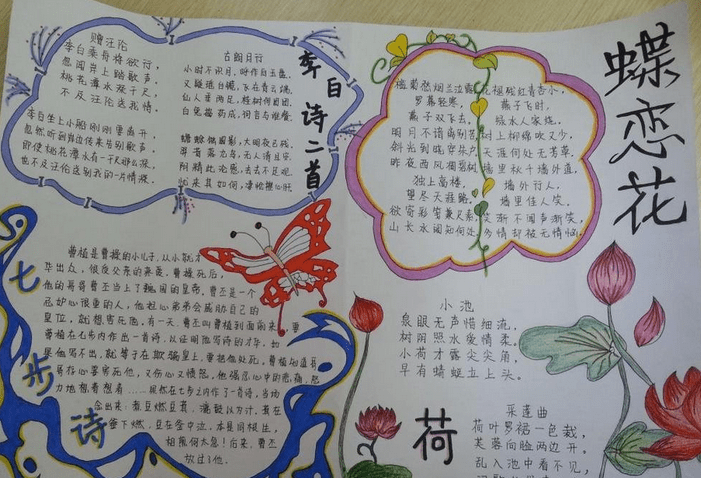 赠汪伦
李白乘舟将欲行，
忽闻岸上踏歌声。
桃花潭水深千尺，
不及汪伦送我情。
李白坐上小船刚刚要离开，
忽然听到岸边传来告别歌声。
即使桃花潭水有一千尺那么深，
也不及汪伦送别我的一片情深。
古朗月行
小时不识月，呼作白玉盘。
又疑瑶台镜，飞在青云端。
仙人垂两足，桂树何团团。
白兔捣药成，问言与谁餐。
蟾蜍蚀圆影，大明夜已残。
羿昔落九乌，天人清且安。
阴精此沦惑，去去不足观。
忧来其如何，凄怆摧心肝。
李白诗二首
蝶恋花
槛菊愁烟兰泣露
罗幕轻寒，
燕子双飞去。
明月不谙离别苦
斜光到晓穿朱户
昨夜西风凋碧树
独上高楼，
望尽天涯路。
欲寄彩笺兼尺素
山长水阔知何处
花褪残红青杏小，
燕子飞时，
绿水人家绕。
枝上柳绵吹又少，
天涯何处无芳草。
墙里秋千墙外道，
墙外行人，
墙里佳人笑。
笑渐不闻声渐笑，
多情却被无情恼。
七步诗
曹植是曹操的小儿子，从小就才
华出众，很受父亲的亲爱，曹操死后，
他的哥哥曹丕当上了魏国的皇帝。曹丕是一个
忌妒心很重的人，他担心弟弟会威胁自己的
皇位，就想害死他。有一天，曹丕叫曹植到面前来，要
曹植在七步内作出一首诗，以证明他写诗的才华。如
果他写不出，就等于在欺骗皇上，要把他处死。曹植知道哥
哥存心要害死他，又伤心又愤怒。他强忍心中的悲痛，努
力地想着想着……果然在七步之内作了一首诗，当场
念出来：煮豆燃豆萁，漉豉以为汁。萁在
釜下燃，豆在釜中泣。本是同根生，
相煎何太急！后来，曹丕
放过了他。
小池
泉眼无声惜细流，
树阴照水爱情柔。
小荷才露尖尖角，
早有蜻蜓立上头。
荷
采莲曲
荷叶罗裙一色裁，
芙蓉向脸两边开。
乱入池中看不见，